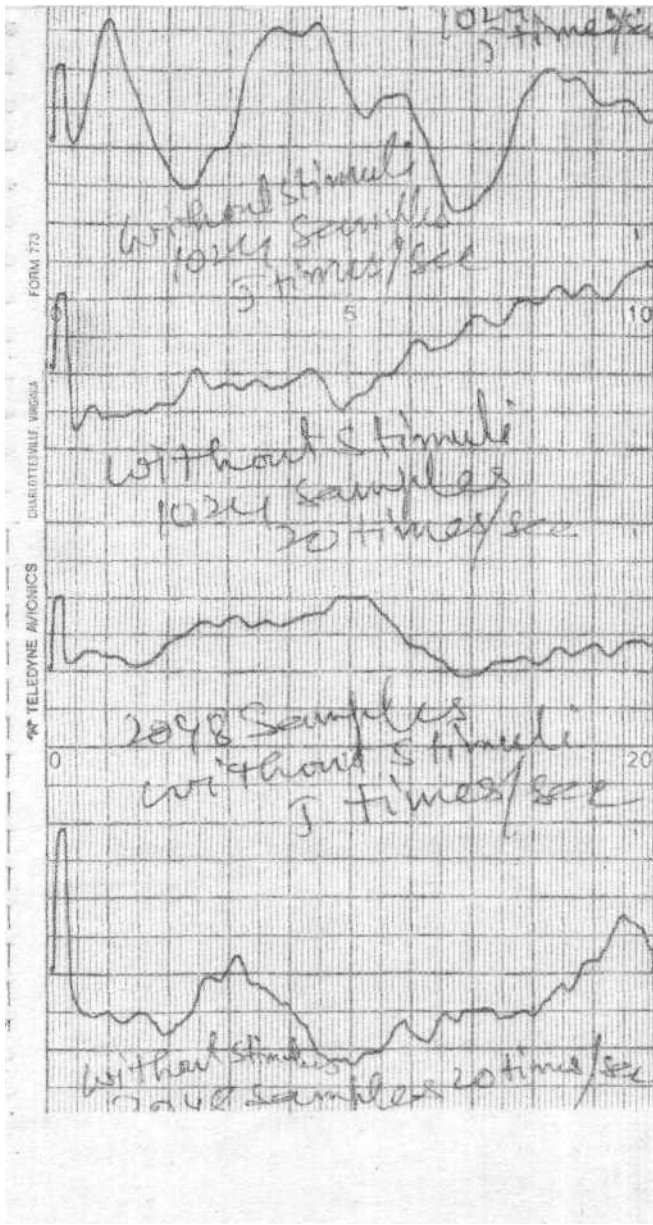 1024
5 times/sec
without stimuli
1024 samples
5 times/sec
FORM 773
0
5
10
CHARLOTTESVILLE, VIRGINIA
without stimuli
1024 samples
20 times/sec
TELEDYNE AVIONICS
2048 Samples
0
20
without stimuli
5 times/sec
without stimulus
2048 samples 20 times/sec